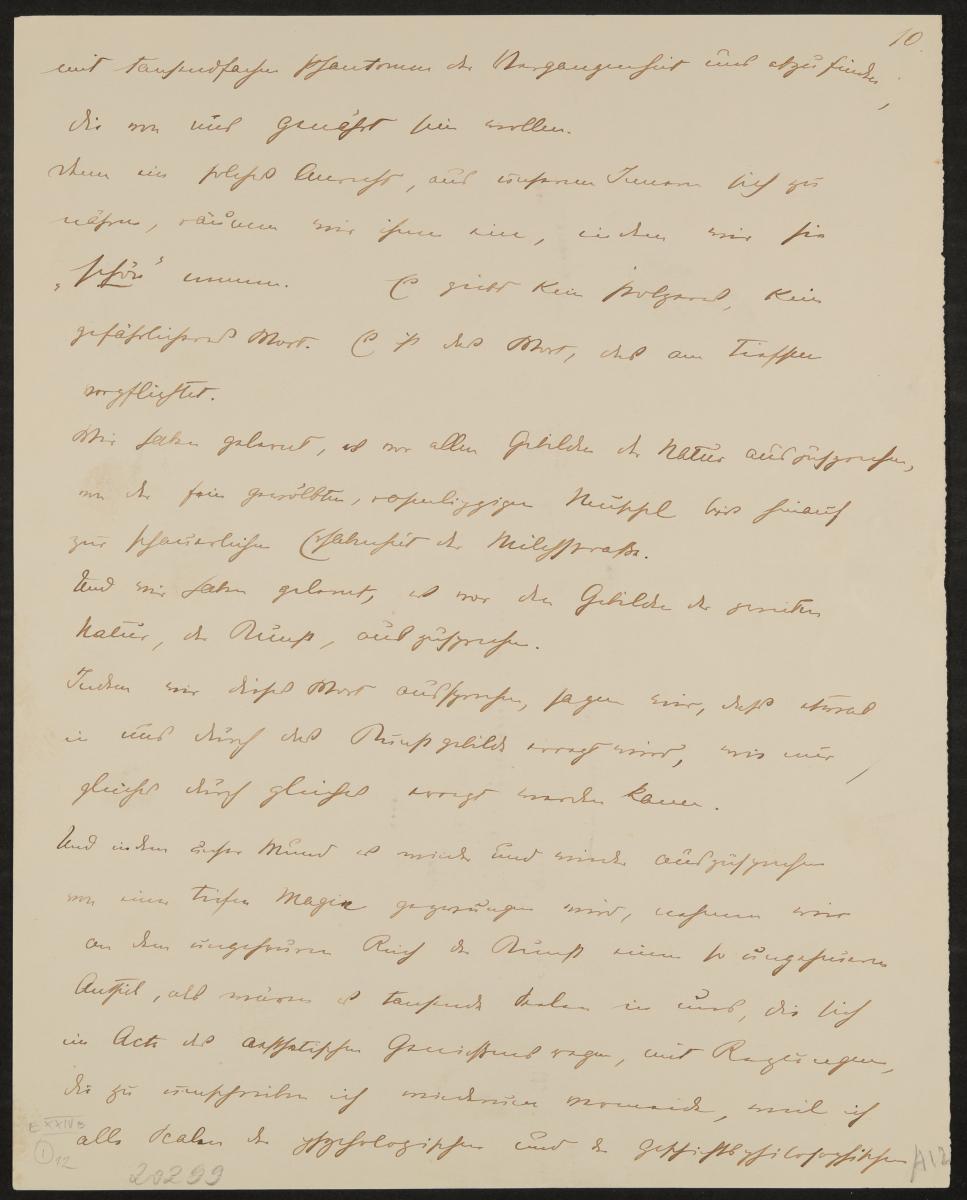 10.
mit tausendfachen Phantomen der Vergangenheit uns abzufinden,
die von uns genährt sein wollen.
Denn ein solches Anrecht, aus unserem Innern sich zu
nähren, räumen wir ihnen ein, indem wir sie
„schön" nennen. Es giebt kein stolzeres, kein
gefährlicheres Wort. Es ist das Wort, das am tiefsten
verpflichtet.
Wir haben gelernt, es vor allen Gebilden der Natur auszusprechen,
von der fein gewölbten, rosenlippigen Muschel bis hinauf
zur schauerlichen Erhabenheit der Milchstrasse.
Und wir haben gelernt, es vor den Gebilden der zweiten
Natur, der Kunst, auszusprechen.
Indem wir dieses Wort aussprechen, sagen wir, dass etwas
in uns durch das Kunstgebilde erregt wird, wie nur
gleiches durch gleiches erregt werden kann.
Und indem unser Mund es wieder und wieder auszusprechen
von einer tiefen Magie gezwungen wird, nehmen wir
an dem ungeheuren Reich der Kunst einen so ungeheueren
Antheil, als wären es tausende Seelen in uns, die sich
im Acte des aesthetischen Geniessens regen, mit Regungen,
die zu umschreiben ich wiederum vermeide, weil ich
alle Scalen der psychologischen und der geschichtsphilosophischen
E XXIV B
1
12
20299
A12